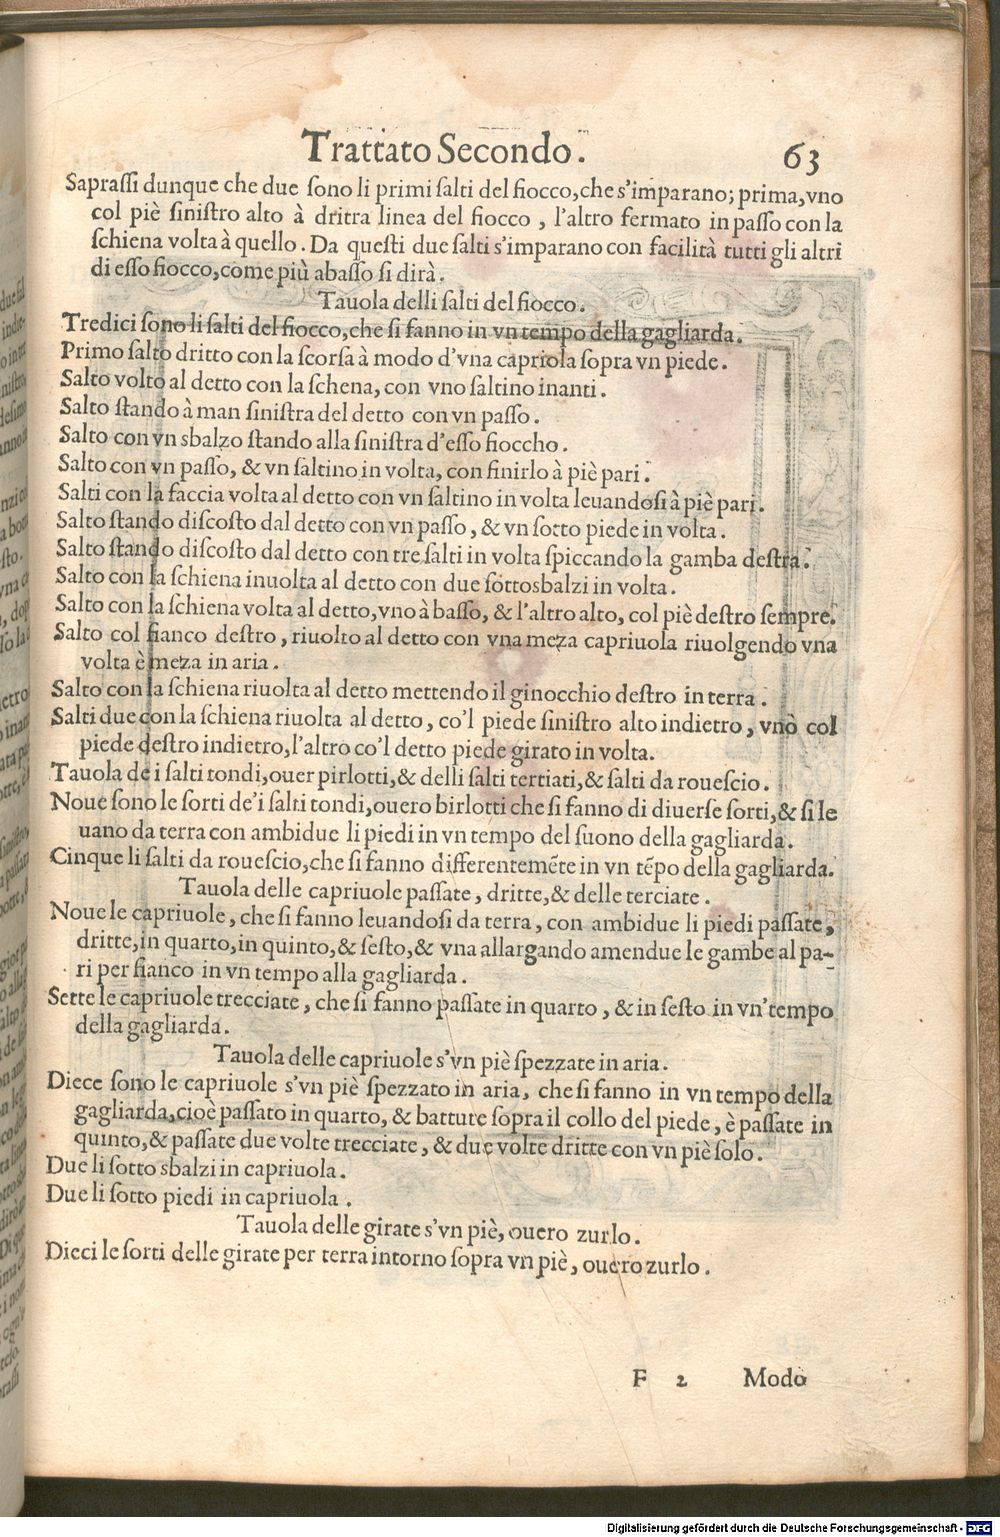 Trattato Secondo. 63
Saprassi dunque che due sono li primi salti del fiocco, che s'imparano; prima, vno
col piè sinistro alto à dritra linea del fiocco, l'altro fermato in passo con la
schiena volta à quello. Da questi due salti s'imparano con facilità tutti gli altri
di esso fiocco, come più abasso si dirà.
Tauola delli salti del fiocco.
Tredici sono li salti del fiocco, che si fanno in vn tempo della gagliarda.
Primo salto dritto con la scorsa à modo d'vna capriola sopra vn piede.
Salto volto al detto con la schena, con vno saltino inanti.
Salto stando à man sinistra del detto con vn passo.
Salto con vn sbalzo stando alla sinistra d'esso fioccho.
Salto con vn passo, & vn saltino in volta, con finirlo à piè pari.
Salti con la faccia volta al detto con vn saltino in volta leuandosi à piè pari.
Salto stando discosto dal detto con vn passo, & vn sotto piede in volta.
Salto stando discosto dal detto con tre salti in volta spiccando la gamba destra.
Salto con la schiena inuolta al detto con due sottosbalzi in volta.
Salto con la schiena volta al detto, vno à basso, & l'altro alto, col piè destro sempre.
Salto col fianco destro, riuolto al detto con vna meza capriuola riuolgendo vna
volta è meza in aria.
Salto con la schiena riuolta al detto mettendo il ginocchio destro in terra.
Salti due con la schiena riuolta al detto, co'l piede sinistro alto indietro, vno col
piede destro indietro, l'altro co'l detto piede girato in volta.
Tauola de i salti tondi, ouer pirlotti, & delli salti tertiati, & salti da rouescio.
Noue sono le sorti de'i salti tondi, ouero birlotti che si fanno di diuerse sorti, & si le
uano da terra con ambidue li piedi in vn tempo del suono della gagliarda.
Cinque li salti da rouescio, che si fanno differentemẽte in vn tẽpo della gagliarda.
Tauola delle capriuole passate, dritte, & delle terciate.
Noue le capriuole, che si fanno leuandosi da terra, con ambidue li piedi passate,
dritte, in quarto, in quinto, & sesto, & vna allargando amendue le gambe al pa-
ri per fianco in vn tempo alla gagliarda.
Sette le capriuole trecciate, che si fanno passate in quarto, & in sesto in vn' tempo
della gagliarda.
Tauola delle capriuole s'vn piè spezzate in aria.
Diece sono le capriuole s'vn piè spezzato in aria, che si fanno in vn tempo della
gagliarda, cioè passato in quarto, & battute sopra il collo del piede, è passate in
quinto, & passate due volte trecciate, & due volte dritte con vn piè solo.
Due li sotto sbalzi in capriuola.
Due li sotto piedi in capriuola.
Tauola delle girate s'vn piè, ouero zurlo.
Dieci le sorti delle girate per terra intorno sopra vn piè, ouero zurlo.
F 2 Modo
Digitalisierung gefördert durch die Deutsche Forschungsgemeinschaft - DFG